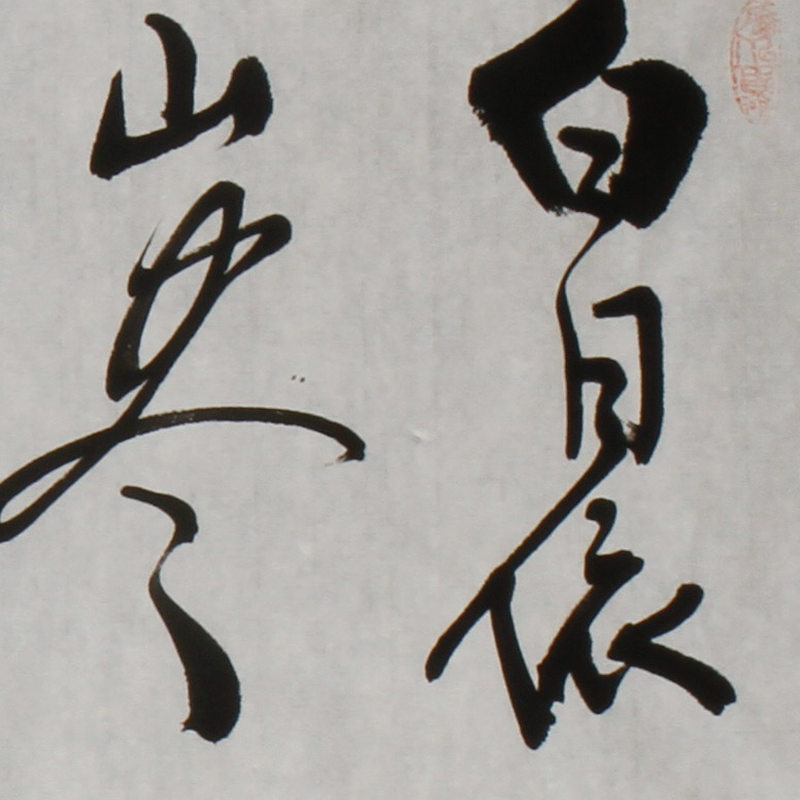 白日依
山尽